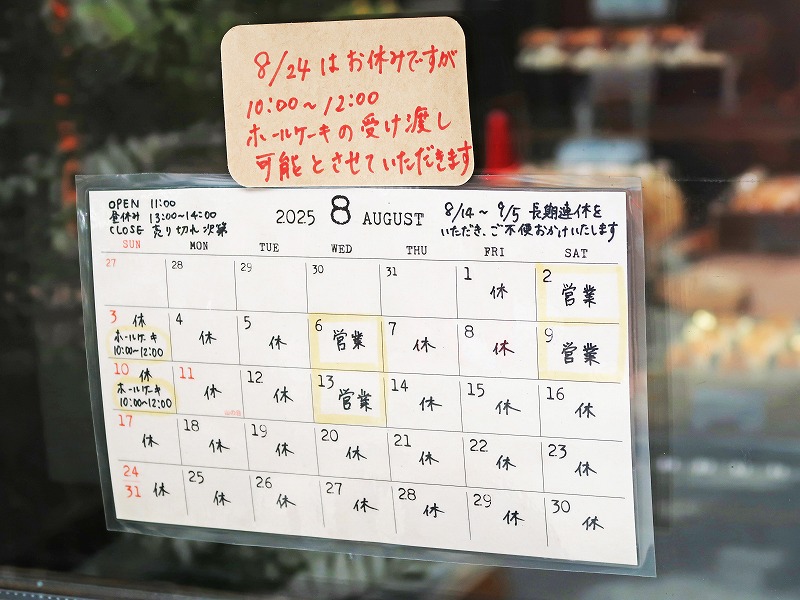 8/24 はお休みですが
10:00〜12:00
ホールケーキの受け渡し
可能とさせていただきます
OPEN 11:00
昼休み 13:00〜14:00
CLOSE 売り切れ次第
2025 8 AUGUST
8/14〜9/5 長期連休を
いただき、ご不便おかけいたします
SUN MON TUE WED THU FRI SAT
27 28 29 30 31 1 休 2 営業
3 休 4 休 5 休 6 営業 7 休 8 休 9 営業
ホールケーキ
10:00〜12:00
10 休 11 休 12 休 13 営業 14 休 15 休 16 休
ホールケーキ
10:00〜12:00
山の日
17 休 18 休 19 休 20 休 21 休 22 休 23 休
24/31 休 25 休 26 休 27 休 28 休 29 休 30 休